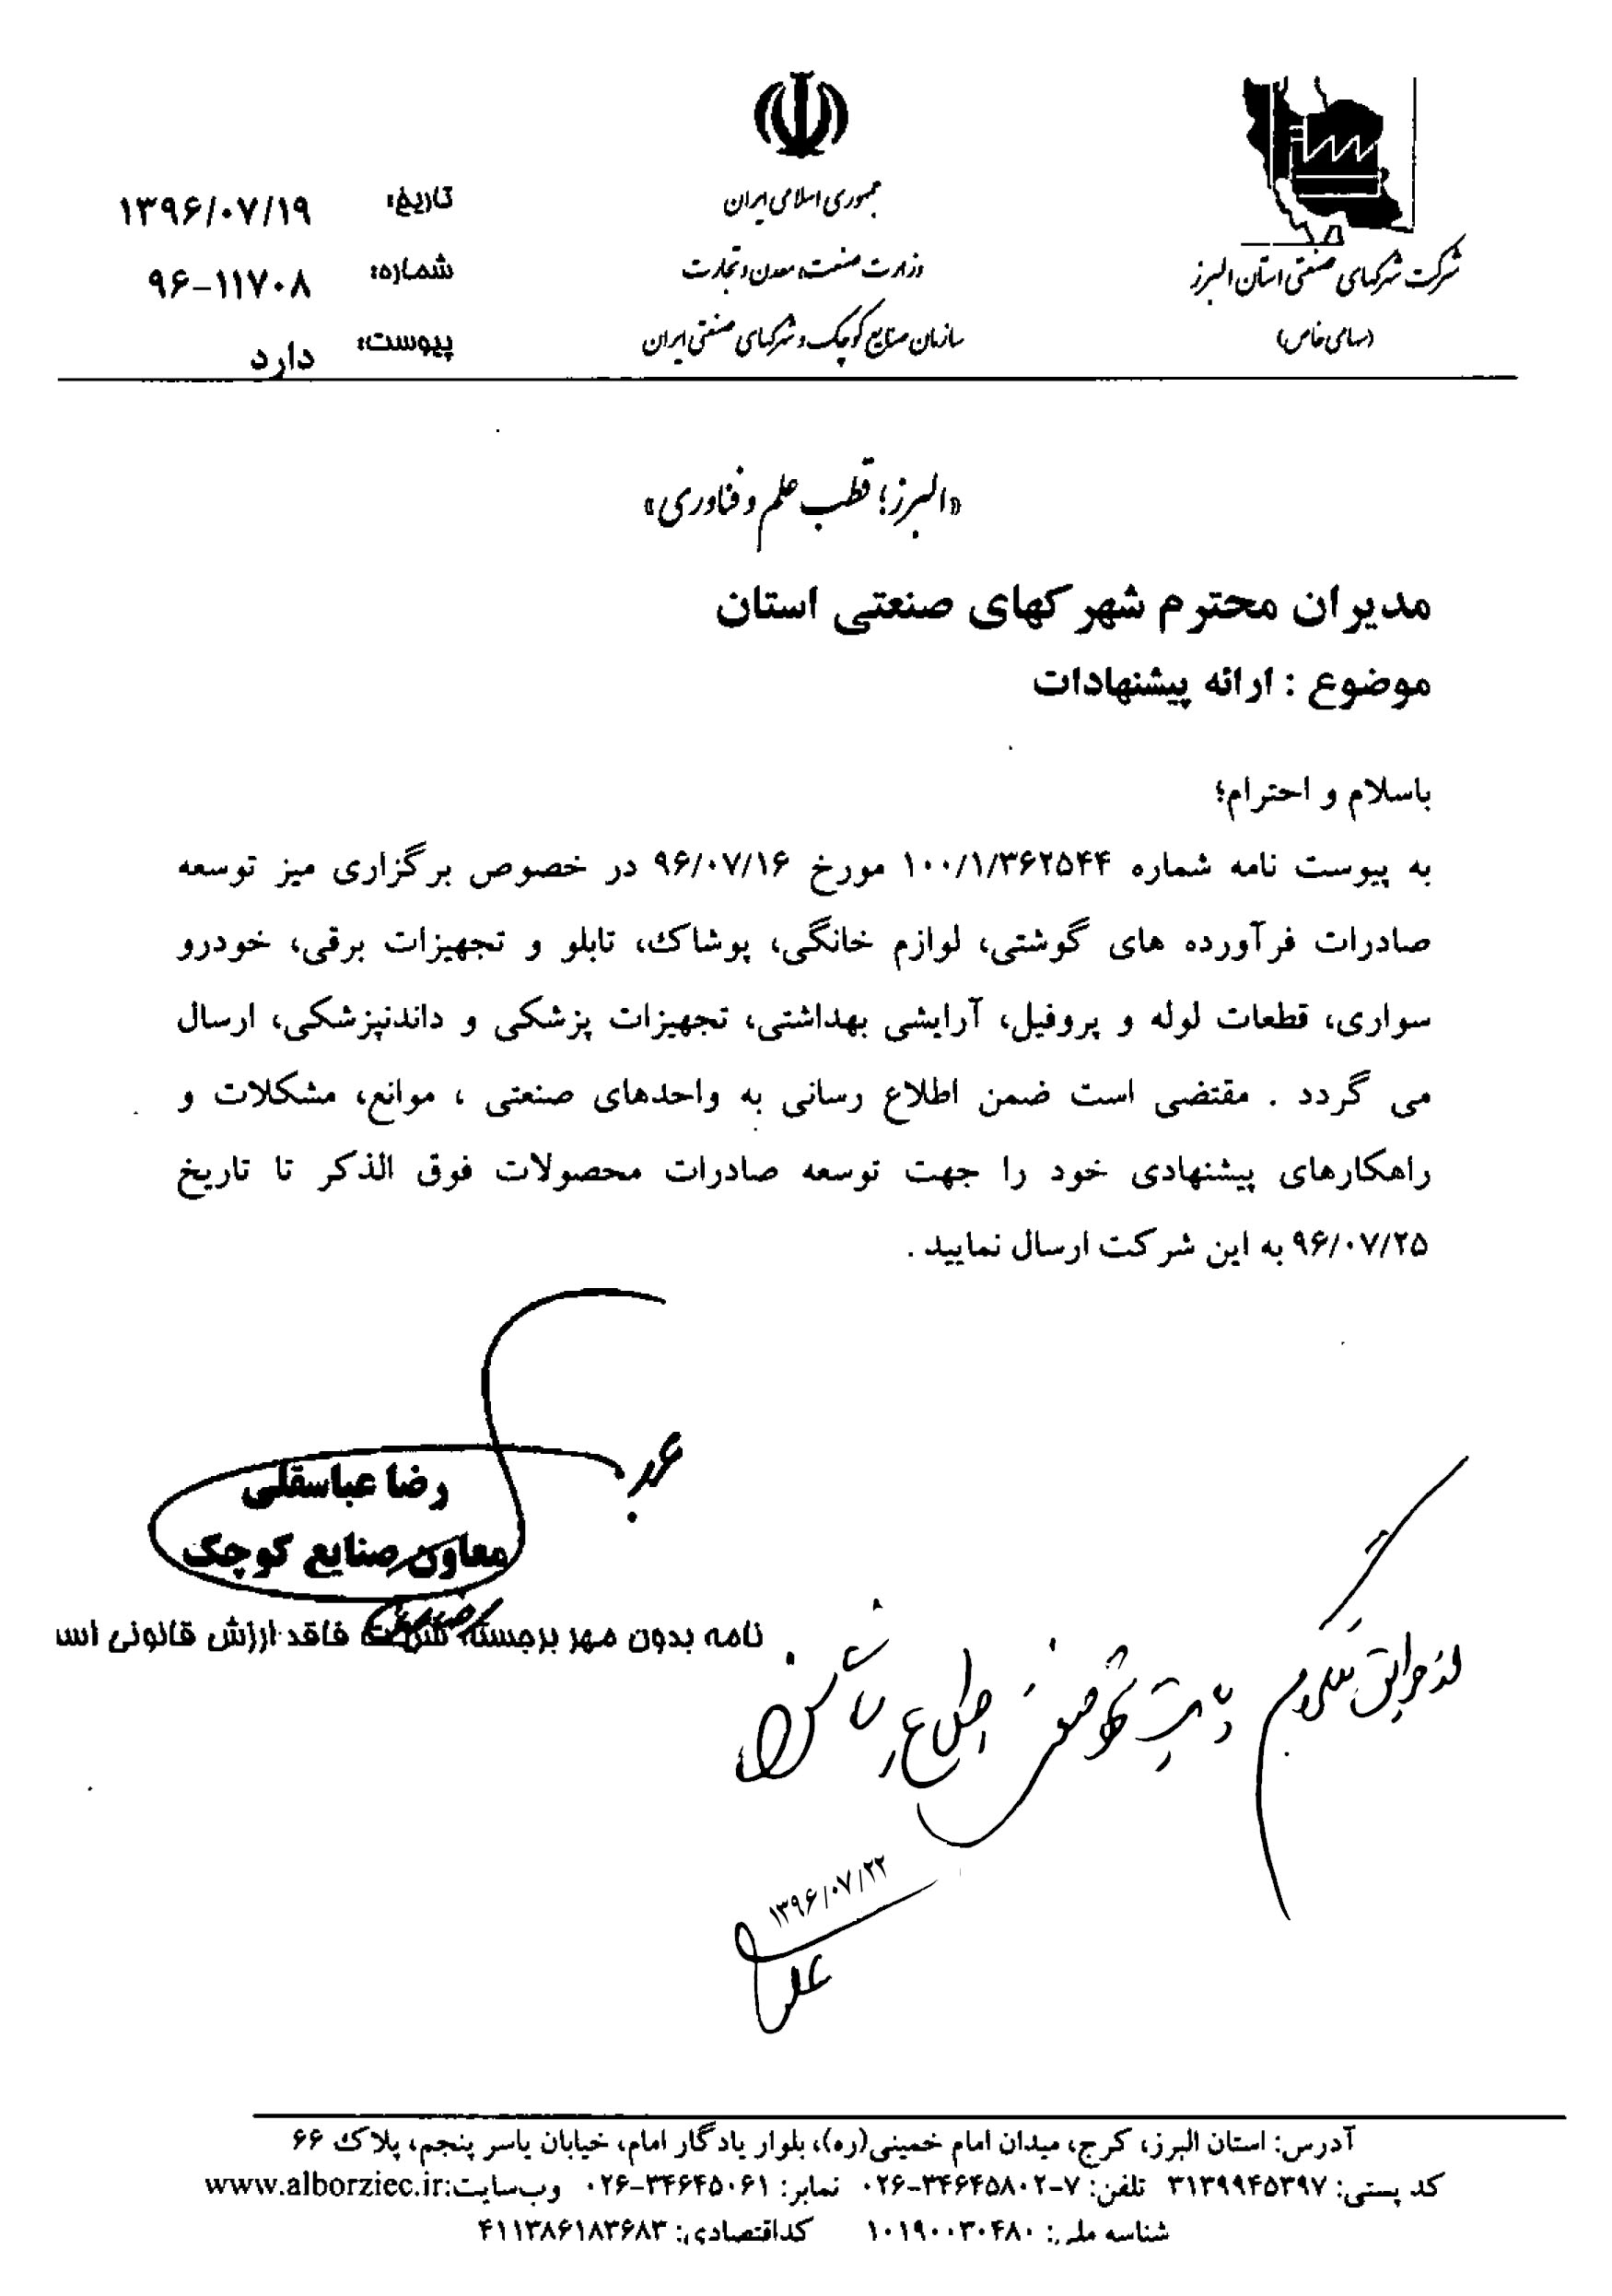 شرکت شهرکهای صنعتی استان البرز
(سهامی خاص)
جمهوری اسلامی ایران
وزارت صنعت، معدن و تجارت
سازمان صنایع کوچک و شهرکهای صنعتی ایران
تاریخ: ۱۳۹۶/۰۷/۱۹
شماره: ۹۶-۱۱۷۰۸
پیوست: دارد
«البرز؛ قطب علم و فناوری»
مدیران محترم شهرکهای صنعتی استان
موضوع : ارائه پیشنهادات
باسلام و احترام؛
به پیوست نامه شماره ۱۰۰/۱/۳۶۲۵۴۴ مورخ ۹۶/۰۷/۱۶ در خصوص برگزاری میز توسعه
صادرات فرآورده های گوشتی، لوازم خانگی، پوشاک، تابلو و تجهیزات برقی، خودرو
سواری، قطعات لوله و پروفیل، آرایشی بهداشتی، تجهیزات پزشکی و داندنپزشکی، ارسال
می گردد . مقتضی است ضمن اطلاع رسانی به واحدهای صنعتی ، موانع، مشکلات و
راهکارهای پیشنهادی خود را جهت توسعه صادرات محصولات فوق الذکر تا تاریخ
۹۶/۰۷/۲۵ به این شرکت ارسال نمایید .
رضا عباسقلی
معاون صنایع کوچک
نامه بدون مهر برجسته شرکت فاقد ارزش قانونی اس
صنعتی اطلاع رسانی
۱۳۹۶/۰۷/۲۲
آدرس: استان البرز، کرج، میدان امام خمینی(ره)، بلوار یادگار امام، خیابان یاسر پنجم، پلاک ۶۶
کد پستی: ۳۱۳۹۹۴۵۳۹۷ تلفن: ۷-۰۲۶-۳۴۶۴۵۸۰۲ نمابر: ۰۲۶-۳۴۶۴۵۰۶۱ وب‌سایت:www.alborziec.ir
شناسه ملی: ۱۰۱۹۰۰۳۰۴۸۰ کداقتصادی: ۴۱۱۳۸۶۱۸۳۶۸۳